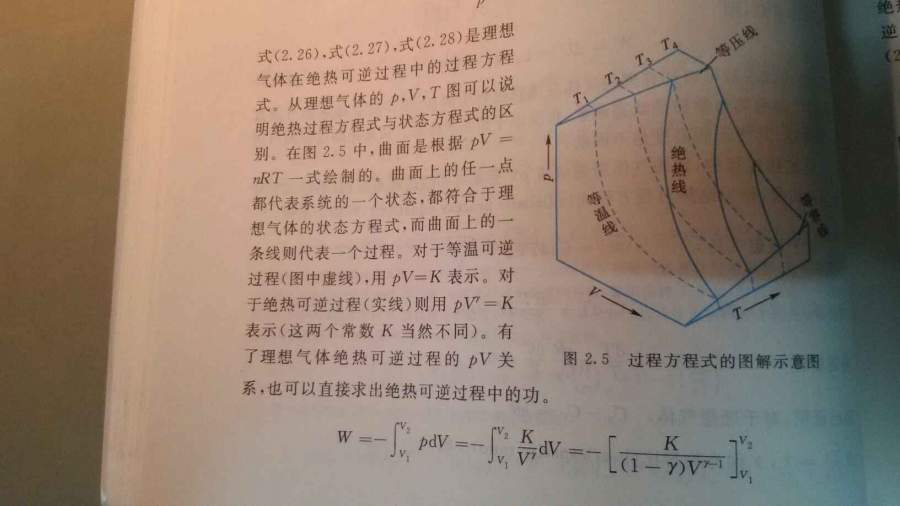 p
式(2.26),式(2.27),式(2.28)是理想
气体在绝热可逆过程中的过程方程
式。从理想气体的 p,V,T 图可以说
明绝热过程方程式与状态方程式的区
别。在图 2.5 中,曲面是根据 pV =
nRT 一式绘制的。曲面上的任一点
都代表系统的一个状态,都符合于理
想气体的状态方程式,而曲面上的一
条线则代表一个过程。对于等温可逆
过程(图中虚线),用 pV=K 表示。对
于绝热可逆过程(实线)则用 pVγ=K
表示(这两个常数 K 当然不同)。有
了理想气体绝热可逆过程的 pV 关
系,也可以直接求出绝热可逆过程中的功。
T1
T2
T3
T4
等压线
p
等温线
绝热线
V
T
图 2.5 过程方程式的图解示意图
W =-∫V1V2 pdV =-∫V1V2 K/Vγ dV =-[K/((1-γ)Vγ-1)]V1V2
绝热
逆
(2